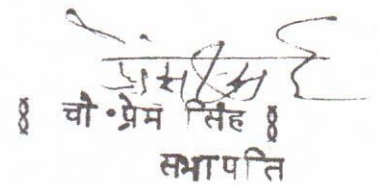 ॰ चौ॰प्रेम सिंह ॰
सभापति